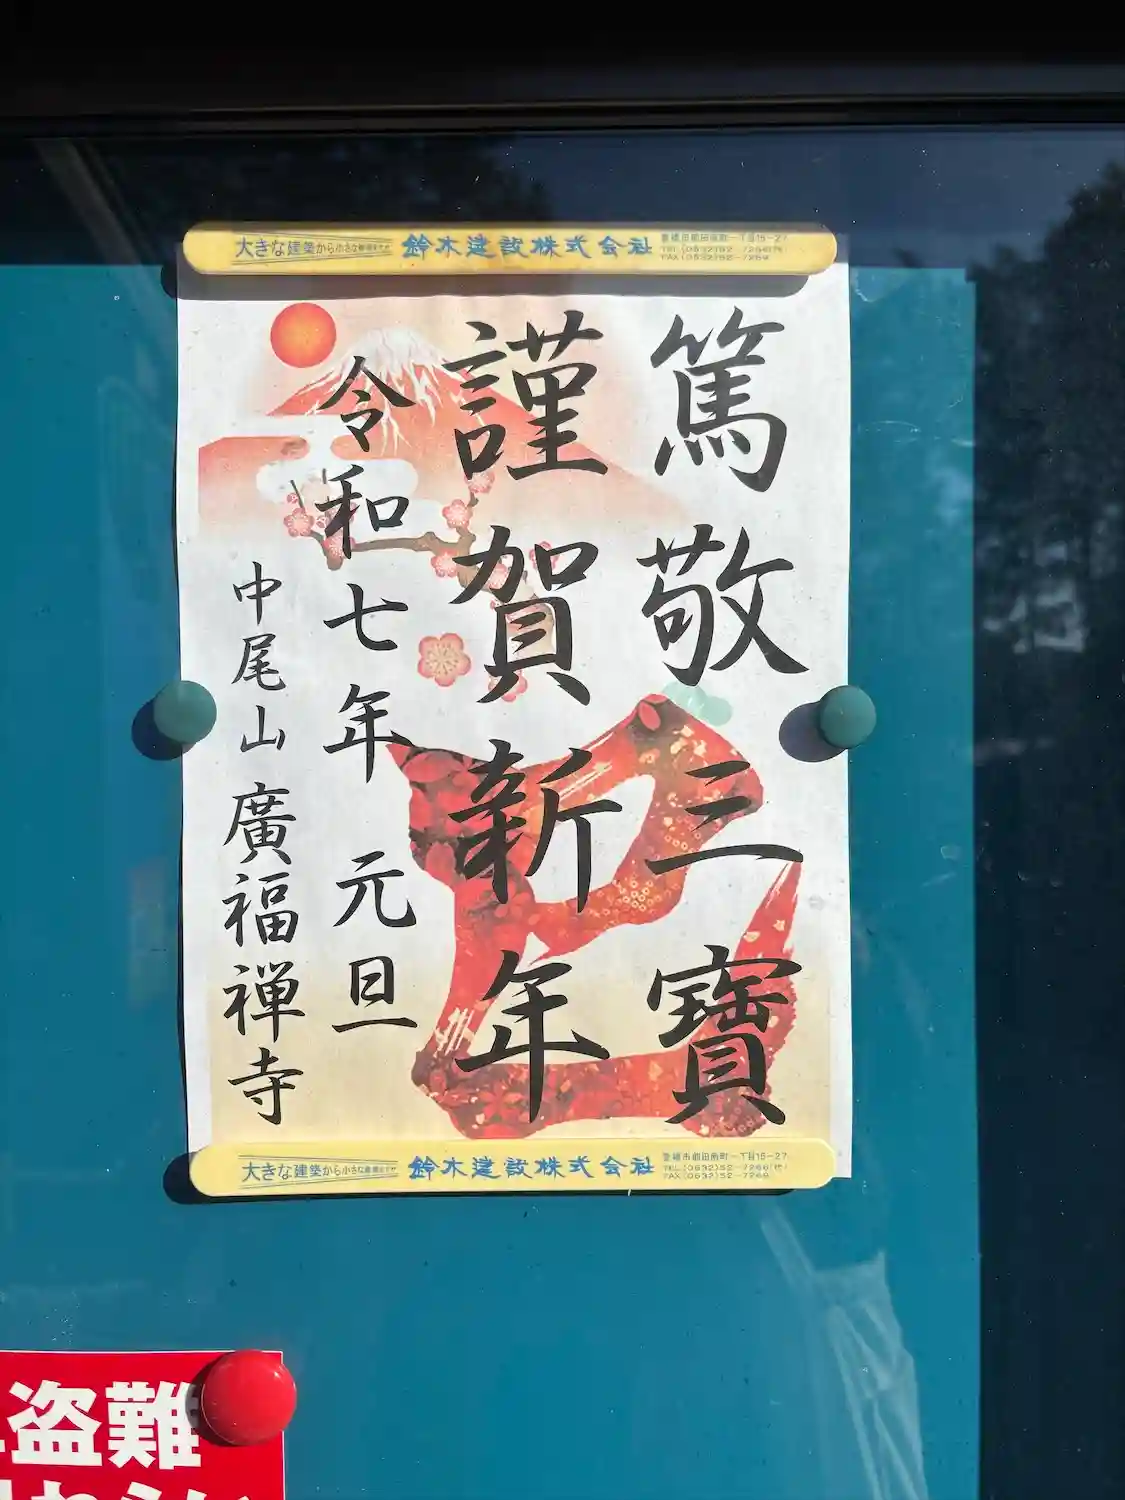 大きな建築から小さな修理まで 鈴木建設株式会社 豊橋市前田南町一丁目15-27
TEL(0532)52-7266(代)
FAX(0532)52-7269
篤敬三寶
謹賀新年
令和七年 元旦
中尾山 廣福禅寺
大きな建築から小さな修理まで 鈴木建設株式会社 豊橋市前田南町一丁目15-27
TEL(0532)52-7266(代)
FAX(0532)52-7269
盗難